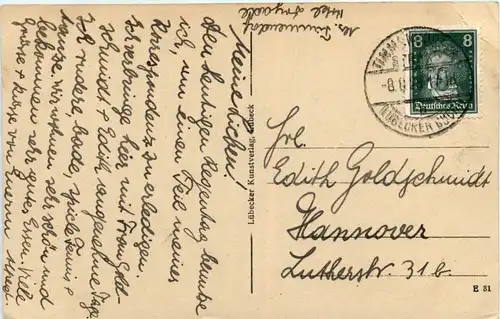 Meine Lieben!
Den heutigen Regentag benutze
ich, um einen Teil meiner
Korrespondenz zu erledigen.
Ich verbringe hier mit Frau Gold-
schmidt + Edith angenehme Tage.
Ich rudere, bade, spiele Tennis +
tanze. Wir wohnen sehr schön und
bekommen sehr gutes Essen. Viele
Grüsse + Küsse von Ihrem
Hotel
Lübecker Kunstverlag, Lübeck
8 8
Deutsches Reich
TIMM
LÜBECKER BUCHT
Frl.
Edith Goldschmidt
Hannover
Lutherstr. 31 b
E 31